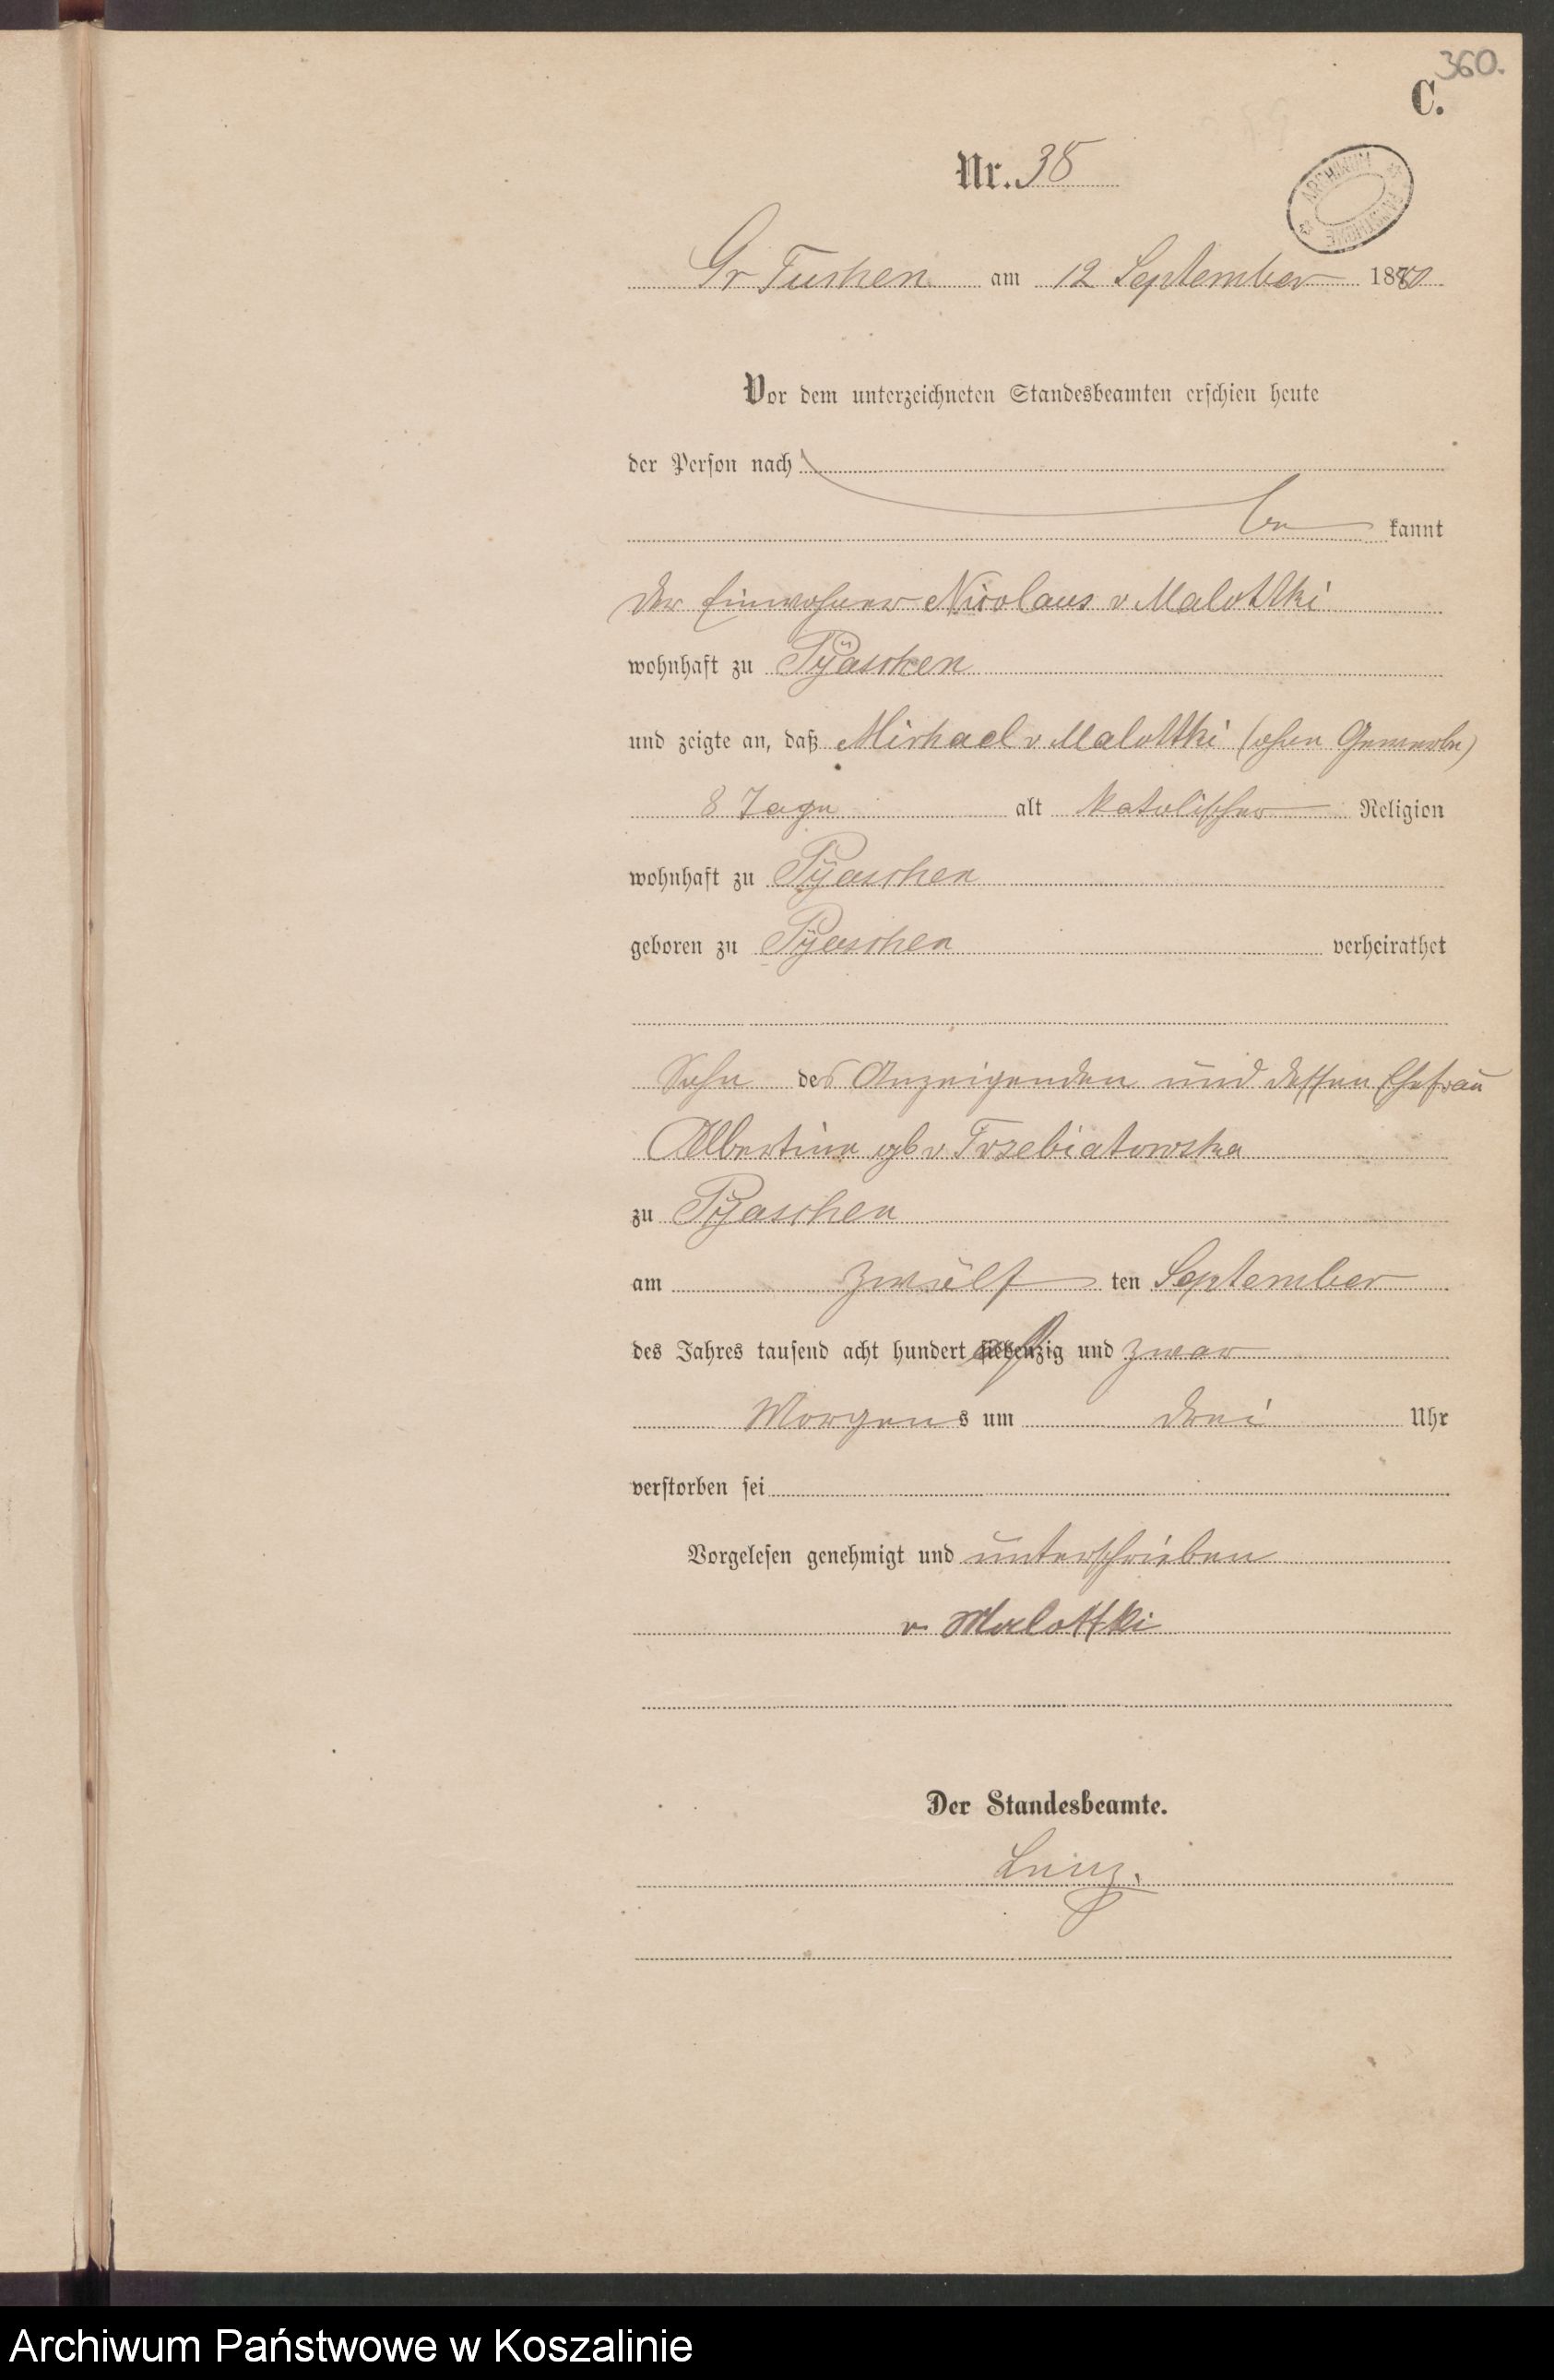 360.
C.
Nr. 38
ARCHIWUM PAŃSTWOWE
Gr Tuchen am 12 September 1880
Vor dem unterzeichneten Standesbeamten erschien heute
der Person nach
be kannt
der Einwohner Nicolaus v Malottki
wohnhaft zu Pÿaschen
und zeigte an, daß Michael v Malottki (ohne Gewerbe)
8 Tage alt katolischer Religion
wohnhaft zu Pÿaschen
geboren zu Pÿaschen verheirathet
Sohn des Anzeigenden und dessen Ehefrau
Albertine geb v Trzebiatowska
zu Pÿaschen
am zwölf ten September
des Jahres tausend acht hundert siebenzig und zwar
Morgens um drei Uhr
verstorben sei
Vorgelesen genehmigt und unterschrieben
v. Malottki
Der Standesbeamte.
Archiwum Państwowe w Koszalinie